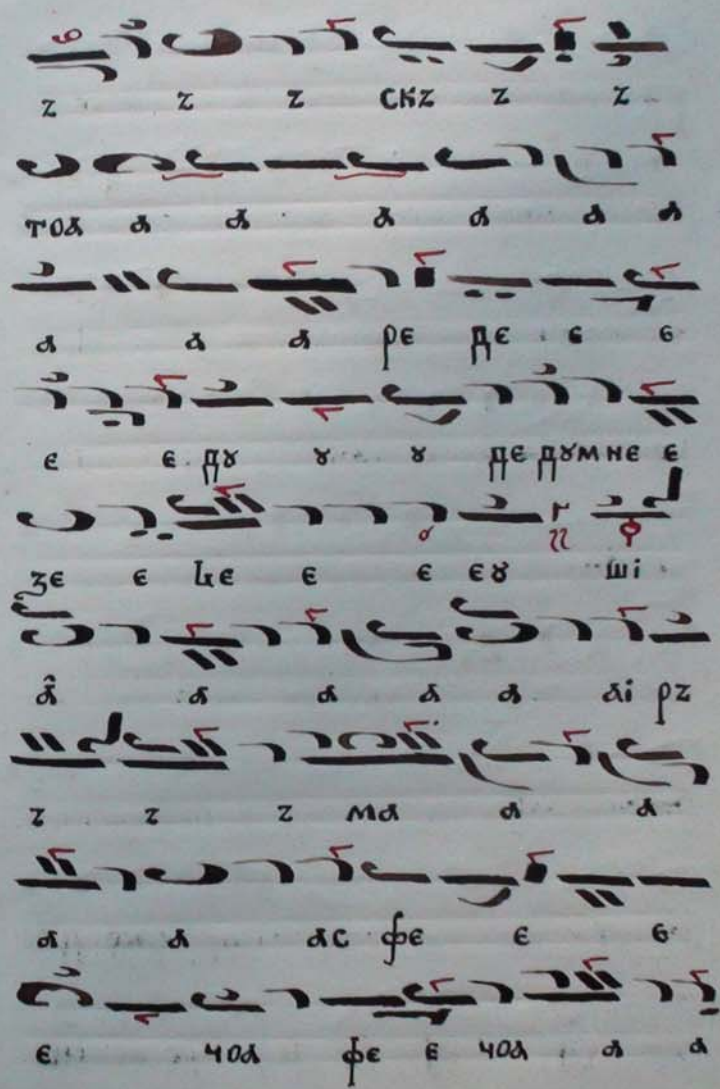 ъ ъ ъ скъ ъ ъ
тоа а а а а а а
а а а ре де е е
е е дꙋ ꙋ ꙋ де дꙋмне е
зе е це е е еꙋ ші
а̑ а а а а аі ръ
ъ ъ ъ ма а а
а а ас фе е е
е чоа фе е чоа а а